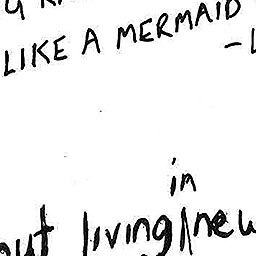 LIKE A MERMAID
in
living/new